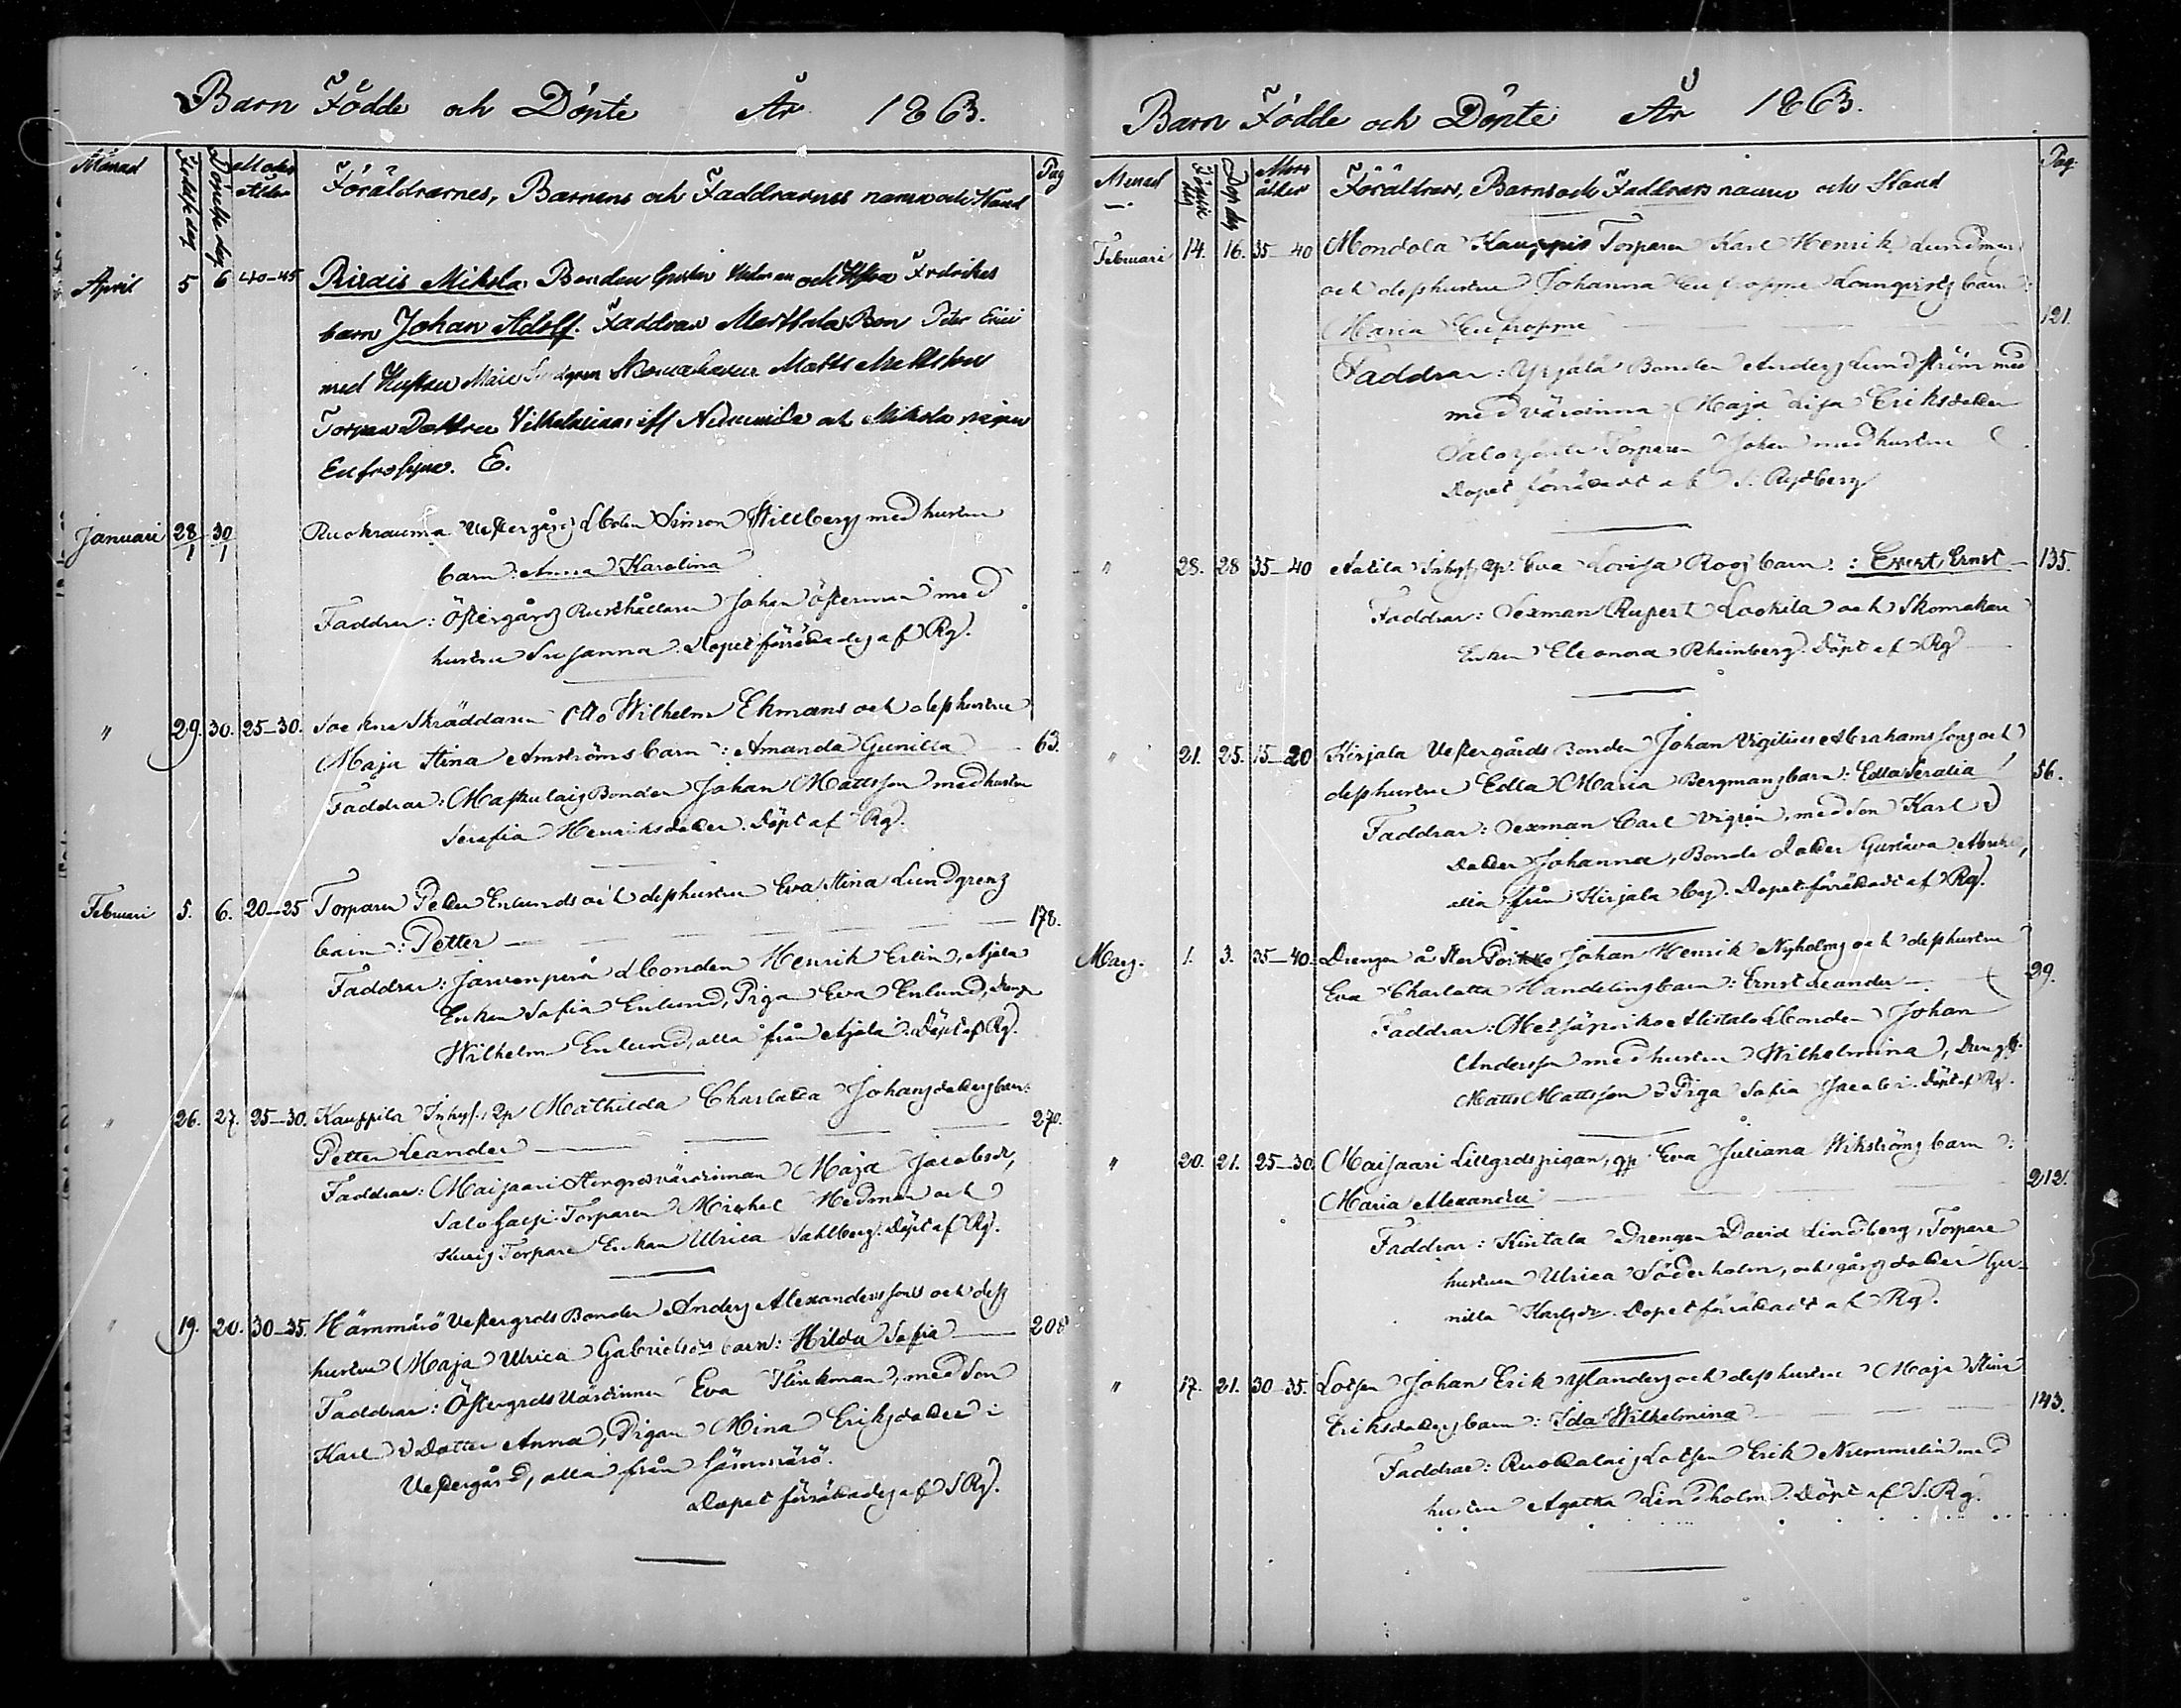 Barn Födde och Döpte År 1863.
Månad Födelse dag Döpelse dag Moders Ålder Föräldrarnes, Barnens och Faddrarnes namn och Stånd Pag
April 5 6 40-45 Mikola Bonden Gustav och Hustru Fredrikas
barn Johan Adolf. Faddrar Bon Peter Erici
med Hustru Maria Matts
Torpare Dottren Vilhelmina och Mikola pigan
Eufrosyne. E.
Januari 28/1 30/1 Ruokrauma Vestergårds Lbden Simon Willbergs med hustru
barn: Anna Karolina
Faddrar: Östergårds Rusthållaren Johan Österman med
hustru Susanna. Dopet förrättades af Rg.
" 29. 30. 25-30. Sockne Skräddaren Otto Wilhelm Ekmans och dess hustru
Maja Stina Amströms barn: Amanda Gunilla — 63.
Faddrar: Bonden Johan Mattsson med hustru
Serafia Henriksdotter. Döpt af Rg.
Februari 5. 6. 20-25 Torparen Petter Enlunds och dess hustru Eva Stina Lundgrens
barn: Petter — 178.
Faddrar: Järvenperä Lbonden Henrik Erlin, Ajala
Enkan Safia Enlund, Pigan Eva Enlund, Dreng
Wilhelm Enlund, alla från Ajala. Döpt af Rg.
" 26. 27. 25-30. Kauppila Inhys. Qp Mathilda Charlotta Johansdotters barn:
Petter Leander — 270.
Faddrar: Maisaari Storgrds värdinnan Maja Jacobsdr,
Torparen Michel Hedman och
Torpare Enkan Ulrica Sahlberg. Döpt af Rg.
" 19. 20. 30-35. Hämmärö Vestergrds Bonden Anders Alexanderssons och dess
hustru Maja Ulrica Gabrielsdrs barn: Hilda Safia — 208
Faddrar: Östergrds Värdinnan Eva Flinkman, med Son
Karl o Dotter Anna, Pigan Mina Eriksdotter i
Vestergård, alla från Hämmärö.
Dopet förrättades af S Rg.
Barn Födde och Döpte År 1863.
Månad Födelse dag Döp. dag Mors ålder Föräldrars, Barns och Faddrars namn och Stånd Pag.
Februari 14. 16. 35-40 Mondola Kauppis Torparen Karl Henrik Lundmans
och dess hustru Johanna Eufrosyne Lönnqvists barn:
Maria Eufrosyne — 121.
Faddrar: Yrjälä Bonden Anders Lundström med
med värdinna Maja Lisa Eriksdotter
Torparen Johan med hustru
Dopet förrättadt af S. Rydberg
" 28. 28 35-40 Inhys Qp. Eva Lovisa Roos barn: Evert Ernst — 135.
Faddrar: Sexman Rupert Laokila och Skomakare
Enkan Eleonora Rheinberg. Döpt af Rg
" 21. 25. 15-20 Kirjala Vestergårds Bonden Johan Vigilius Abrahamssons och
dess hustru Edla Maria Bergmans barn: Edla Serafia 56.
Faddrar: Sexman Carl Vigren, med Son Karl o
Dotter Johanna, Bonde dotter Gustava
alla från Kirjala by. Dopet förrättadt af Rg.
Mars. 1. 3. 35-40. Drengen å Stor Pork Johan Henrik Nyholms och dess hustru
Eva Charlotta Mandelins barn: Ernst Leander — 29.
Faddrar: Alistalo Lbonden Johan
Andersson med hustru Wilhelmina, Dreng
Matts Mattsson o Piga Safia Jacobi. Döpt af Rg.
" 20. 21. 25-30 Maisaari Lillgrds pigan, qp Eva Juliana Wikströms barn:
Maria Alexandra — 212.
Faddrar: Kintala Drengen David Lindberg, Torpare
hustrun Ulrica Söderholm, och gårds dotter Gu-
nilla Karlsdr. Dopet förrättadt af Rg.
" 17. 21. 30-35. Lotsen Johan Erik Ylanders och dess hustru Maja Stina
Eriksdotters barn: Ida Wilhelmina — 143.
Faddrar: Lotsen Erik Nummelin med
hustru Agatha Lindholm. Döpt af S. Rg.